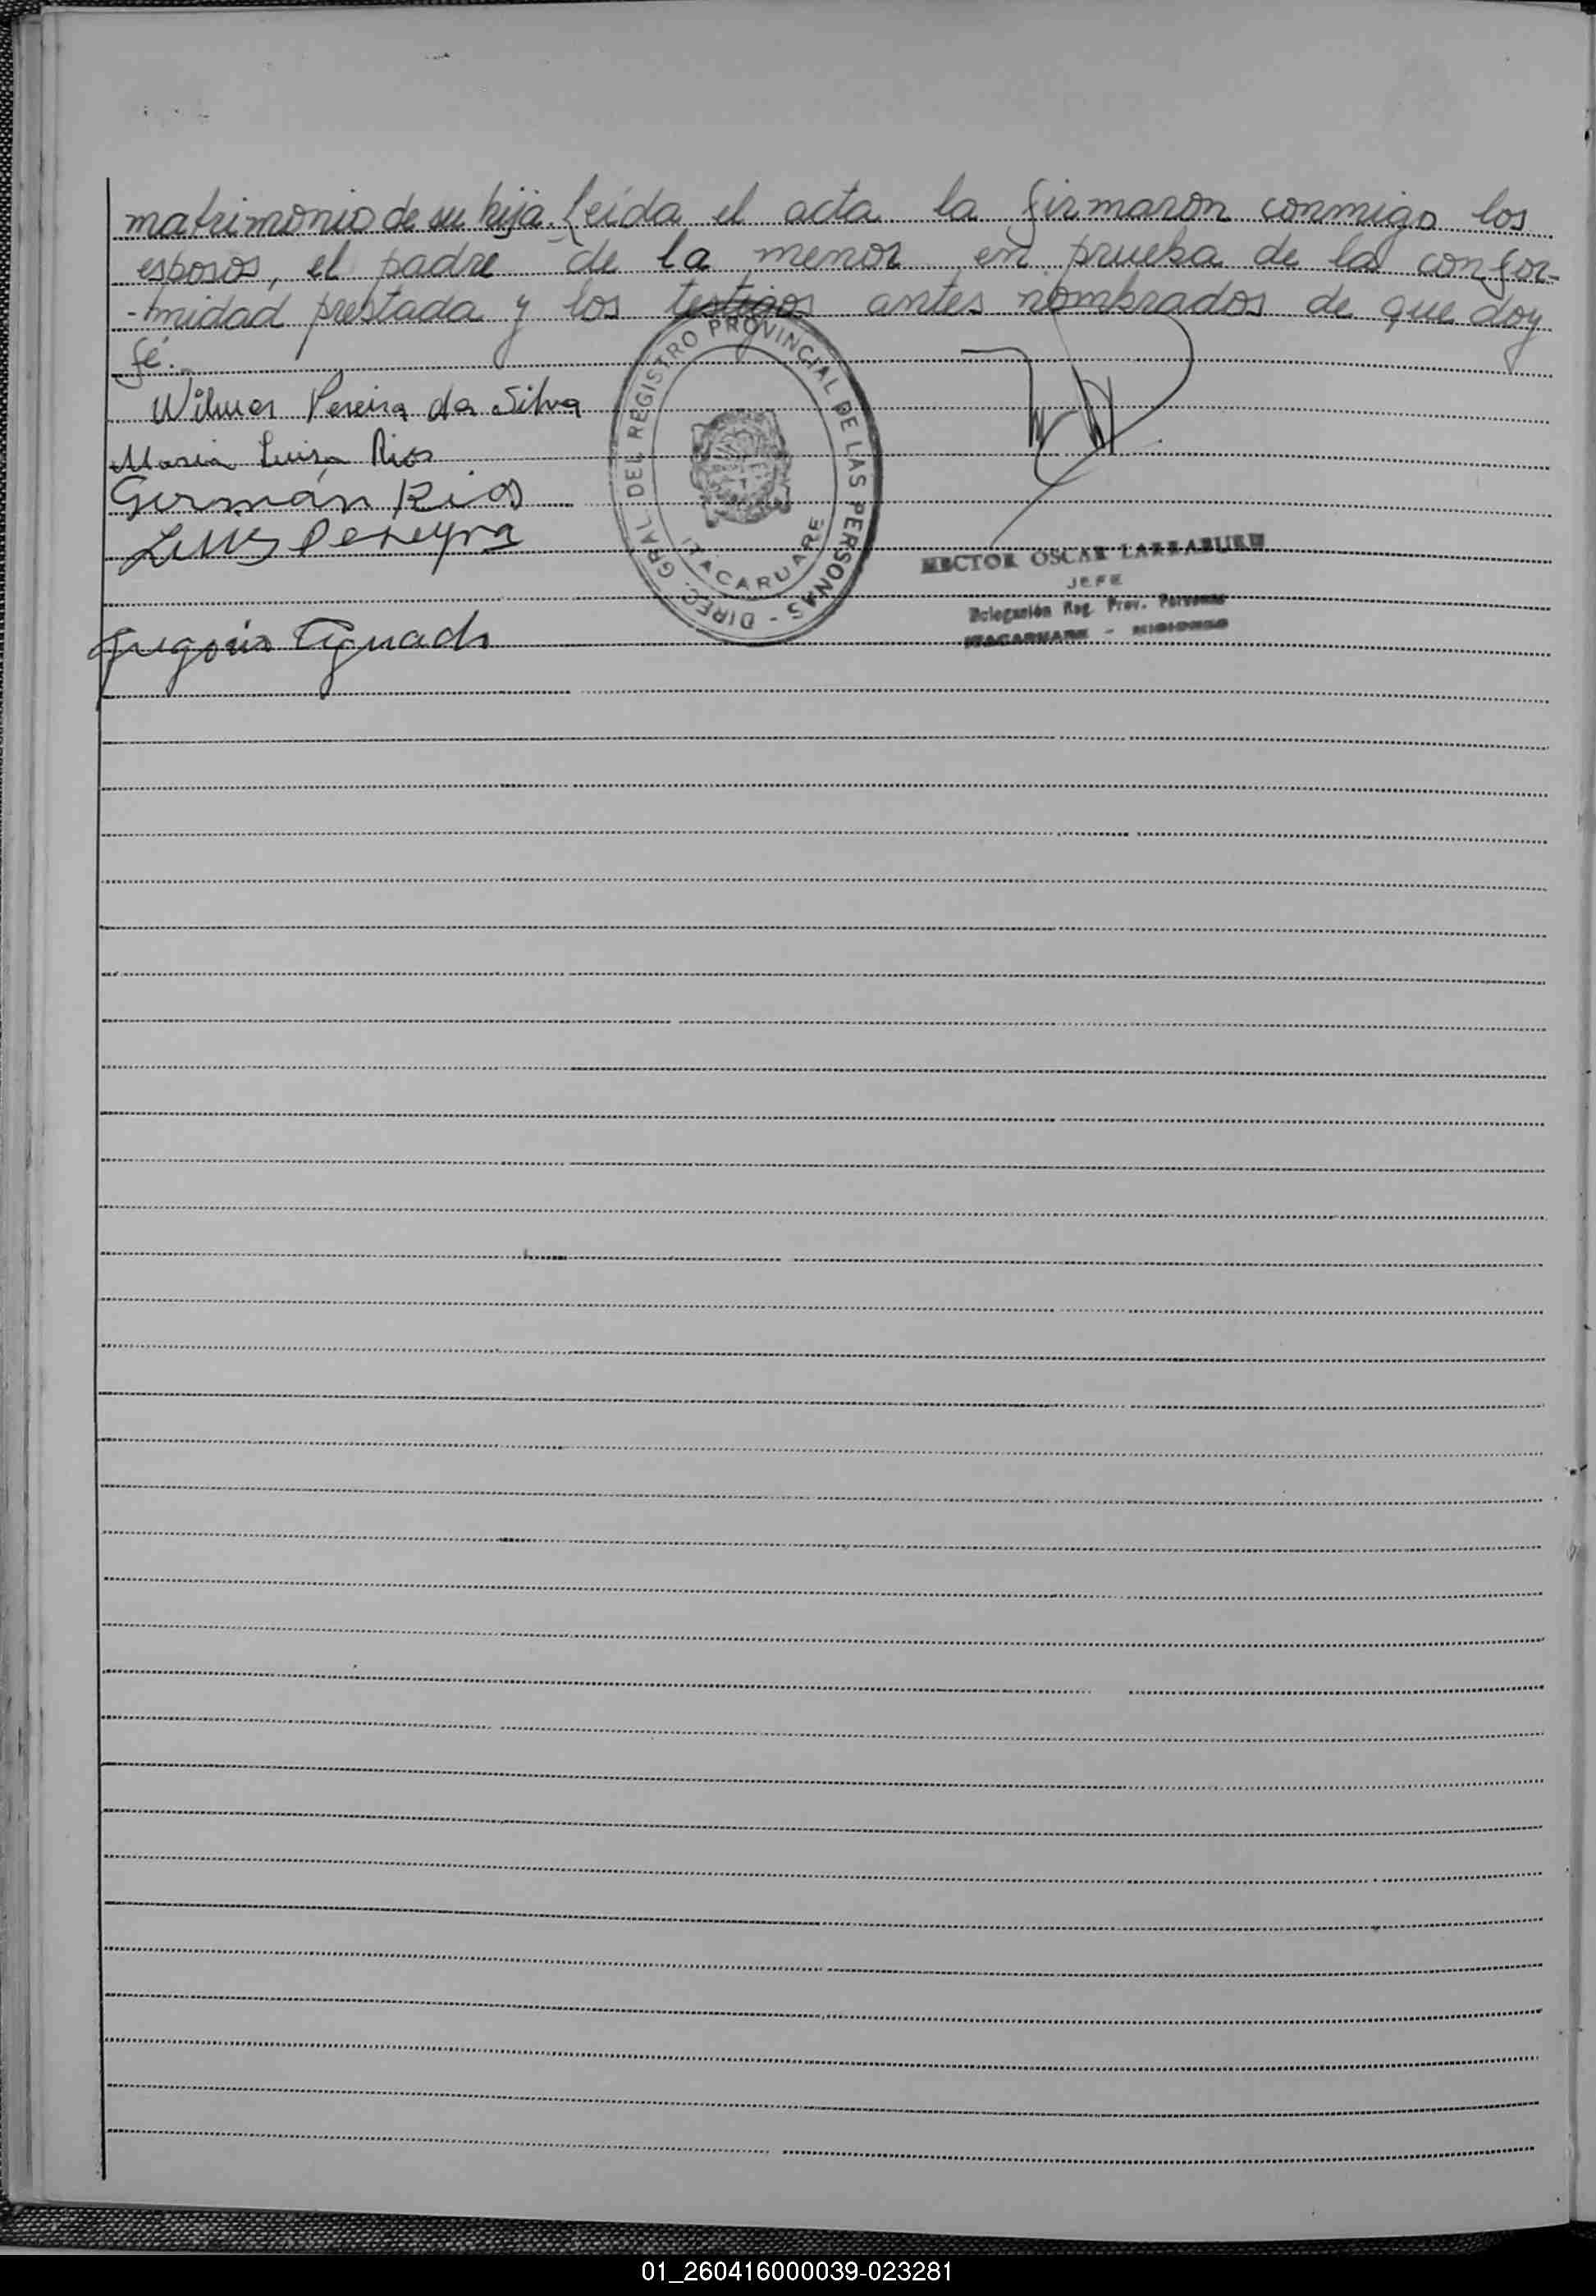 matrimonio de su hija. Leída el acta la firmaron conmigo los
esposos, el padre de la menor en prueba de la confor-
-midad prestada y los testigos antes nombrados de que doy
fé.
Wilmar Pereira da Silva
Maria Luisa Rios
Germán Rios
Luis Pereyra
Gregorio Aguado
DIREC. GRAL. DEL REGISTRO PROVINCIAL DE LAS PERSONAS -
ITACARUARE
HECTOR OSCAR LARRABURU
JEFE
Delegación Reg. Prov. Personas
ITACARUARE - MISIONES
01_260416000039-023281